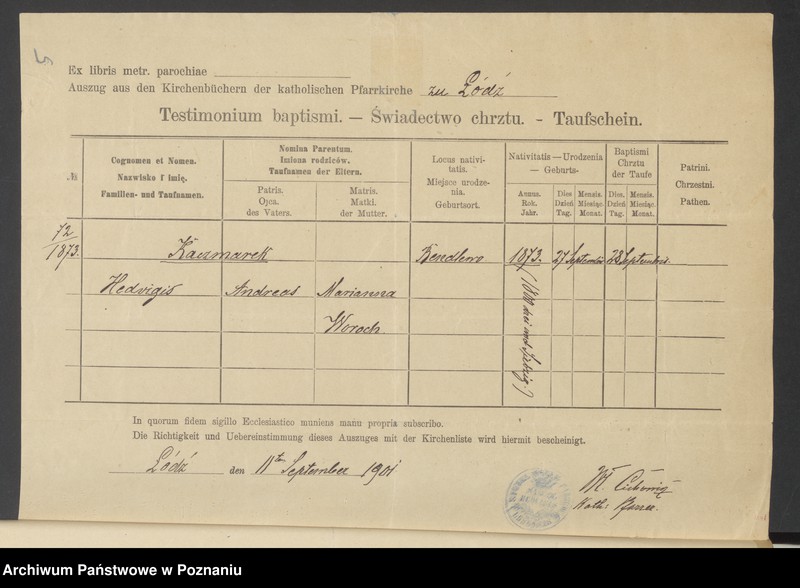 Ex libris metr. parochiae
Auszug aus den Kirchenbüchern der katholischen Pfarrkirche zu Łódź
Testimonium baptismi. — Świadectwo chrztu. - Taufschein.
№
Cognomen et Nomen.
Nazwisko i imię.
Familien- und Taufnamen.
Nomina Parentum.
Imiona rodziców.
Taufnamen der Eltern.
Patris.
Ojca.
des Vaters.
Matris.
Matki.
der Mutter.
Locus nativi-
tatis.
Miejsce urodze-
nia.
Geburtsort.
Nativitatis — Urodzenia
— Geburts-
Annus.
Rok.
Jahr.
Dies
Dzień
Tag.
Mensis.
Miesiąc.
Monat.
Baptismi
Chrztu
der Taufe
Dies.
Dzień
Tag.
Mensis.
Miesiąc.
Monat.
Patrini.
Chrzestni.
Pathen.
72
1873.
Kaczmarek Bendlewo 1873. 27 September 28 September
Hedvigis Andreas Marianna
Woroch
In quorum fidem sigillo Ecclesiastico muniens manu propria subscribo.
Die Richtigkeit und Uebereinstimmung dieses Auszuges mit der Kirchenliste wird hiermit bescheinigt.
Łódź den 11ten September 1901
Kath. Pfarrer.
Archiwum Państwowe w Poznaniu